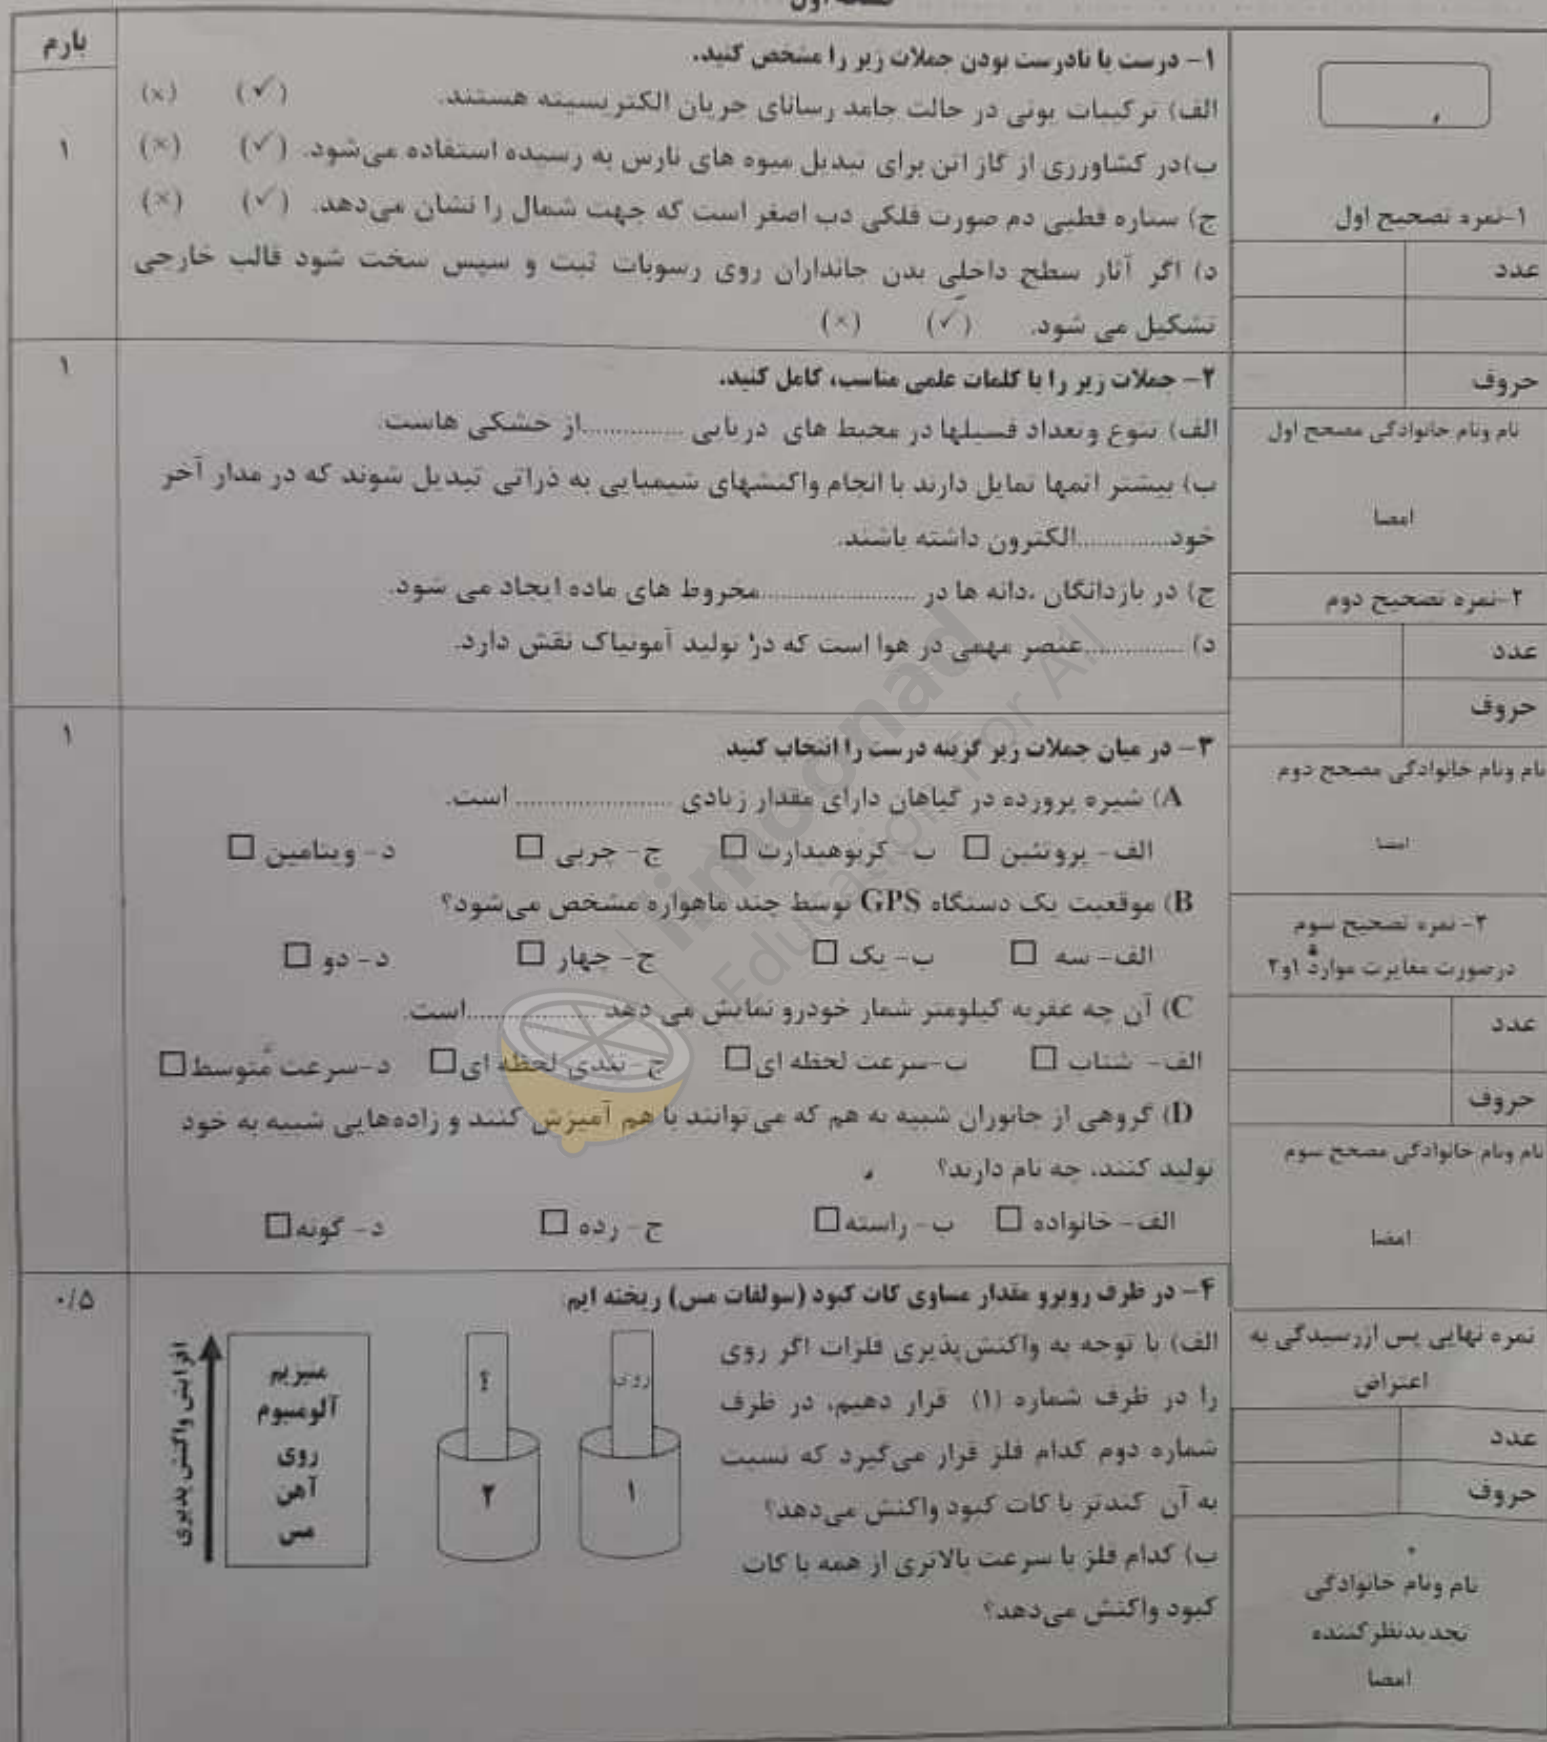 بارم
۱- درست یا نادرست بودن جملات زیر را مشخص کنید.
الف) ترکیبات یونی در حالت جامد رسانای جریان الکتریسیته هستند. (✓) (×)
۱
ب)در کشاورزی از گاز اتن برای تبدیل میوه های نارس به رسیده استفاده می‌شود. (✓) (×)
ج) ستاره قطبی دم صورت فلکی دب اصغر است که جهت شمال را نشان می‌دهد. (✓) (×)
د) اگر آثار سطح داخلی بدن جانداران روی رسوبات ثبت و سپس سخت شود قالب خارجی
تشکیل می شود. (✓) (×)
۱
۲- جملات زیر را با کلمات علمی مناسب، کامل کنید.
الف) تنوع وتعداد فسیلها در محیط های دریایی ..............از خشکی هاست.
ب) بیشتر اتمها تمایل دارند با انجام واکنشهای شیمیایی به ذراتی تبدیل شوند که در مدار آخر
خود..............الکترون داشته باشند.
ج) در بازدانگان ،دانه ها در ......................مخروط های ماده ایجاد می شود.
د) ..............عنصر مهمی در هوا است که در تولید آمونیاک نقش دارد.
۱
۳- در میان جملات زیر گزینه درست را انتخاب کنید
A) شیره پرورده در گیاهان دارای مقدار زیادی ...................... است.
الف- پروتئین □ ب- کربوهیدارت □ ج- چربی □ د- ویتامین □
B) موقعیت یک دستگاه GPS توسط چند ماهواره مشخص می‌شود؟
الف- سه □ ب- یک □ ج- چهار □ د- دو □
C) آن چه عقربه کیلومتر شمار خودرو نمایش می دهد ..................است.
الف- شتاب □ ب-سرعت لحظه ای□ ج- تندی لحظه ای□ د-سرعت متوسط□
D) گروهی از جانوران شبیه به هم که می‌توانند با هم آمیزش کنند و زاده‌هایی شبیه به خود
تولید کنند، چه نام دارند؟
الف- خانواده □ ب- راسته□ ج- رده □ د- گونه□
۰/۵
۴- در ظرف روبرو مقدار مساوی کات کبود (سولفات مس) ریخته ایم
الف) با توجه به واکنش‌پذیری فلزات اگر روی
را در ظرف شماره (۱) قرار دهیم، در ظرف
شماره دوم کدام فلز قرار می‌گیرد که نسبت
به آن کندتر با کات کبود واکنش می‌دهد؟
ب) کدام فلز با سرعت بالاتری از همه با کات
کبود واکنش می‌دهد؟
روی
؟
۱
۲
منیزیم
آلومینیوم
روی
آهن
مس
افزایش واکنش پذیری
۱-نمره تصحیح اول
عدد
حروف
نام ونام خانوادگی مصحح اول
امضا
۲-نمره تصحیح دوم
عدد
حروف
نام ونام خانوادگی مصحح دوم
امضا
۳- نمره تصحیح سوم
درصورت مغایرت موارد ۱و۲
عدد
حروف
نام ونام خانوادگی مصحح سوم
امضا
نمره نهایی پس ازرسیدگی به
اعتراض
عدد
حروف
نام ونام خانوادگی
تجدیدنظرکننده
امضا
limoonad
Education For All